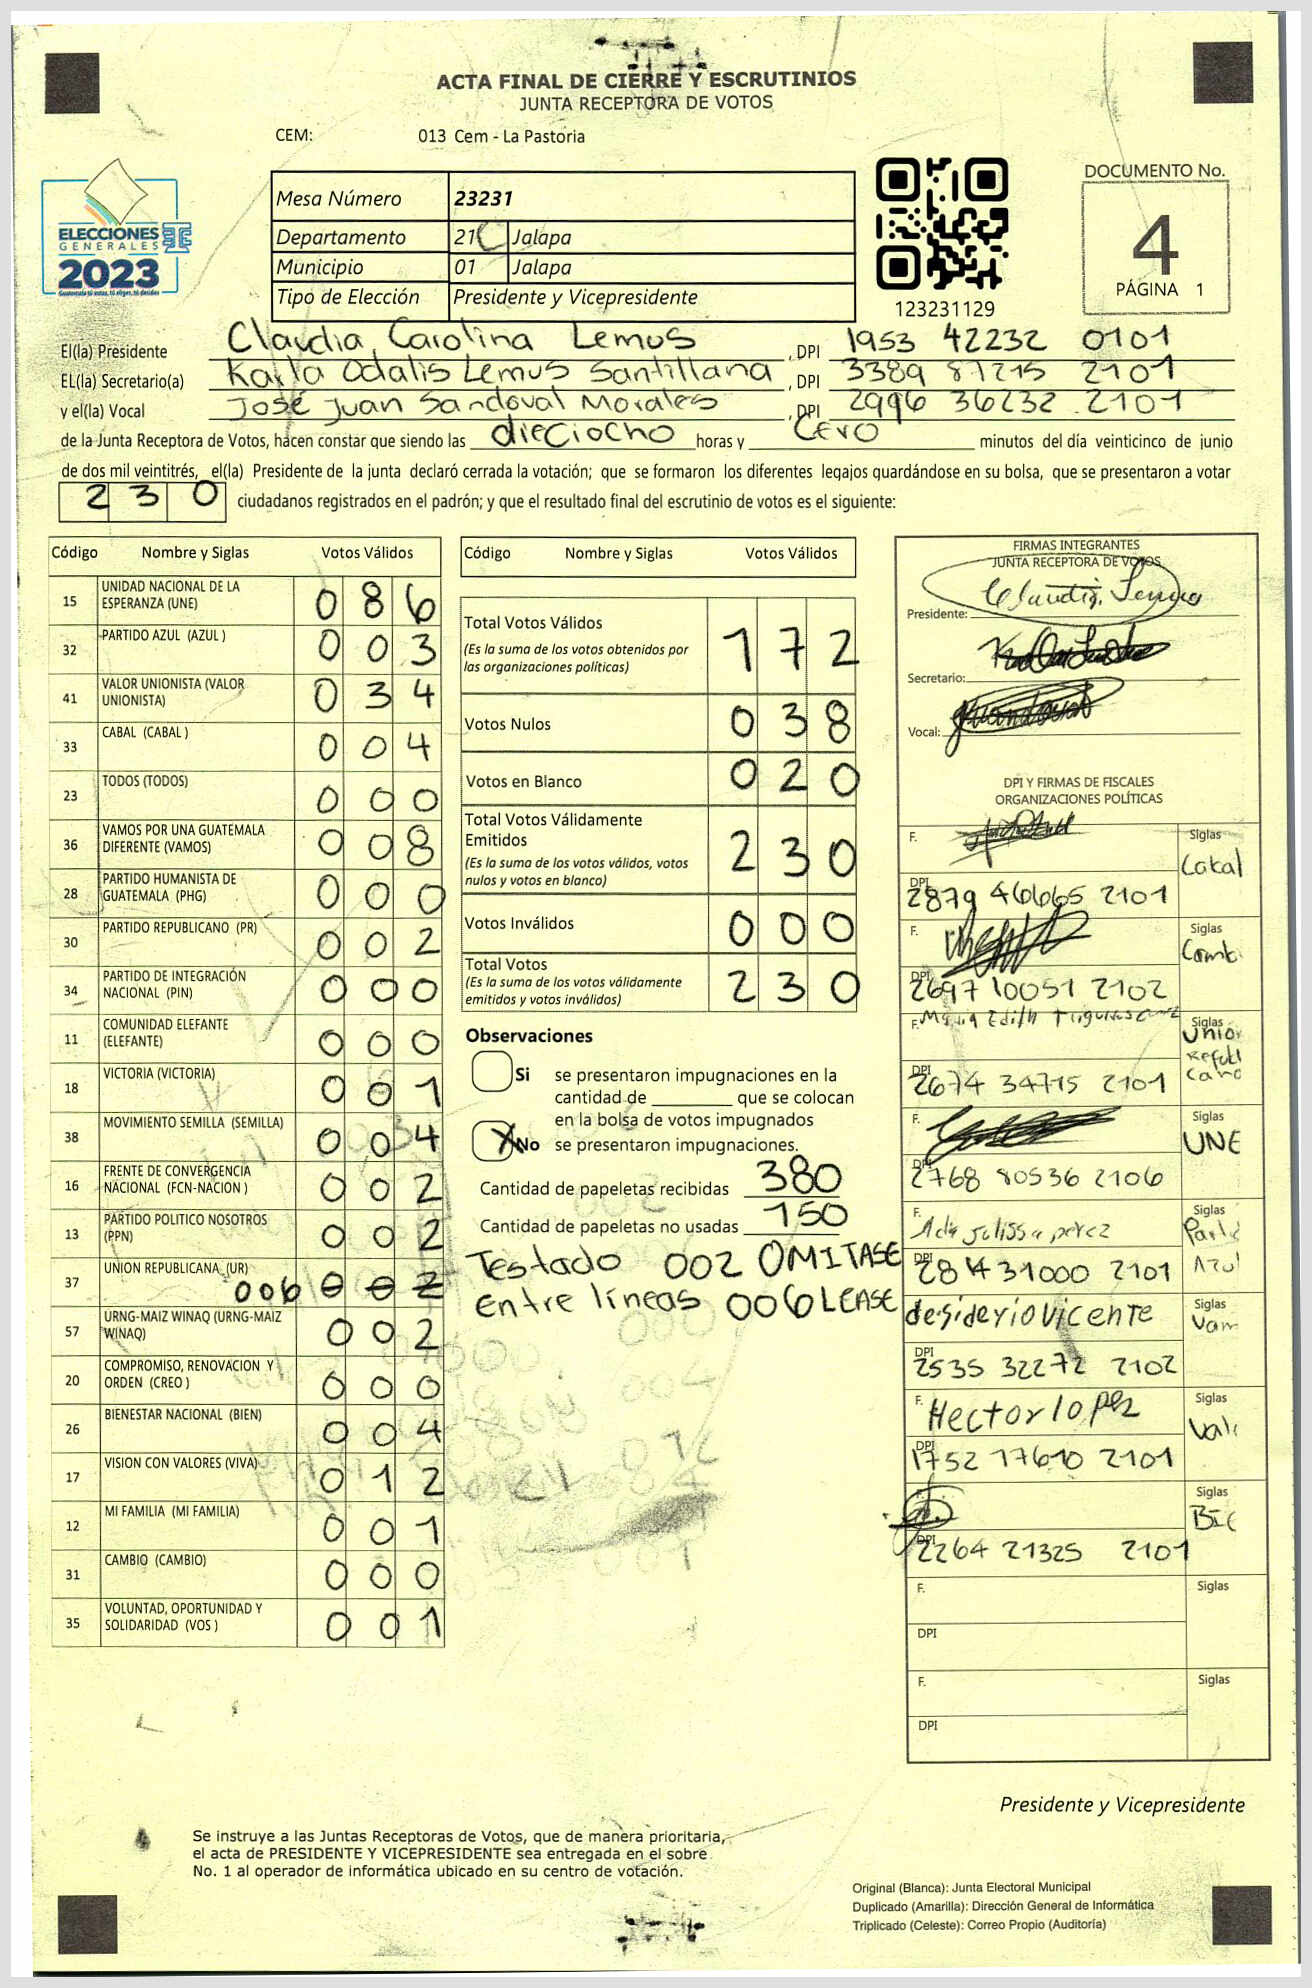 ACTA FINAL DE CIERRE Y ESCRUTINIOS
JUNTA RECEPTORA DE VOTOS
CEM: 013 Cem - La Pastoria
ELECCIONES
GENERALES
2023
Mesa Número 23231
Departamento 21 Jalapa
Municipio 01 Jalapa
Tipo de Elección Presidente y Vicepresidente
123231129
DOCUMENTO No.
4
PÁGINA 1
El(la) Presidente Claudia Carolina Lemus, DPI 1953 42232 0101
EL(la) Secretario(a) Karla Odalis Lemus Santillana, DPI 3389 87215 2101
y el(la) Vocal José Juan Sandoval Morales, DPI 2996 36232 2101
de la Junta Receptora de Votos, hacen constar que siendo las dieciocho horas y cero minutos del día veinticinco de junio
de dos mil veintitrés, el(la) Presidente de la junta declaró cerrada la votación; que se formaron los diferentes legajos guardándose en su bolsa, que se presentaron a votar
230 ciudadanos registrados en el padrón; y que el resultado final del escrutinio de votos es el siguiente:
Código Nombre y Siglas Votos Válidos
15 UNIDAD NACIONAL DE LA ESPERANZA (UNE) 086
32 PARTIDO AZUL (AZUL ) 003
41 VALOR UNIONISTA (VALOR UNIONISTA) 034
33 CABAL (CABAL ) 004
23 TODOS (TODOS) 000
36 VAMOS POR UNA GUATEMALA DIFERENTE (VAMOS) 008
28 PARTIDO HUMANISTA DE GUATEMALA (PHG) 000
30 PARTIDO REPUBLICANO (PR) 002
34 PARTIDO DE INTEGRACIÓN NACIONAL (PIN) 000
11 COMUNIDAD ELEFANTE (ELEFANTE) 000
18 VICTORIA (VICTORIA) 001
38 MOVIMIENTO SEMILLA (SEMILLA) 004
16 FRENTE DE CONVERGENCIA NACIONAL (FCN-NACION ) 002
13 PARTIDO POLITICO NOSOTROS (PPN) 002
37 UNION REPUBLICANA (UR) 006 002
57 URNG-MAIZ WINAQ (URNG-MAIZ WINAQ) 002
20 COMPROMISO, RENOVACION Y ORDEN (CREO ) 000
26 BIENESTAR NACIONAL (BIEN) 004
17 VISION CON VALORES (VIVA) 012
12 MI FAMILIA (MI FAMILIA) 001
31 CAMBIO (CAMBIO) 000
35 VOLUNTAD, OPORTUNIDAD Y SOLIDARIDAD (VOS ) 001
Código Nombre y Siglas Votos Válidos
Total Votos Válidos 172
(Es la suma de los votos obtenidos por
las organizaciones políticas)
Votos Nulos 038
Votos en Blanco 020
Total Votos Válidamente
Emitidos 230
(Es la suma de los votos válidos, votos
nulos y votos en blanco)
Votos Inválidos 000
Total Votos 230
(Es la suma de los votos válidamente
emitidos y votos inválidos)
Observaciones
Si se presentaron impugnaciones en la
cantidad de ________ que se colocan
en la bolsa de votos impugnados
X No se presentaron impugnaciones.
Cantidad de papeletas recibidas 380
Cantidad de papeletas no usadas 150
Testado 002 OMITASE
entre líneas 006 LEASE
FIRMAS INTEGRANTES
JUNTA RECEPTORA DE VOTOS
Presidente: Claudia Lemus
Secretario:
Vocal:
DPI Y FIRMAS DE FISCALES
ORGANIZACIONES POLÍTICAS
F. Siglas Cabal
DPI 2879 46665 2101
F. Siglas Camb
DPI 2697 10051 2102
F. Siglas Union Republicano
DPI 2674 34715 2101
F. Siglas UNE
DPI 2768 80536 2106
F. Siglas Partido Azul
DPI 2101
F. desiderio vicente Siglas Vam
DPI 2535 32272 2102
F. Hector lopez Siglas Valo
DPI 1752 17610 2101
F. Siglas BIE
DPI 2264 21325 2101
F. Siglas
DPI
F. Siglas
DPI
Presidente y Vicepresidente
Se instruye a las Juntas Receptoras de Votos, que de manera prioritaria,
el acta de PRESIDENTE Y VICEPRESIDENTE sea entregada en el sobre
No. 1 al operador de informática ubicado en su centro de votación.
Original (Blanca): Junta Electoral Municipal
Duplicado (Amarilla): Dirección General de Informática
Triplicado (Celeste): Correo Propio (Auditoría)